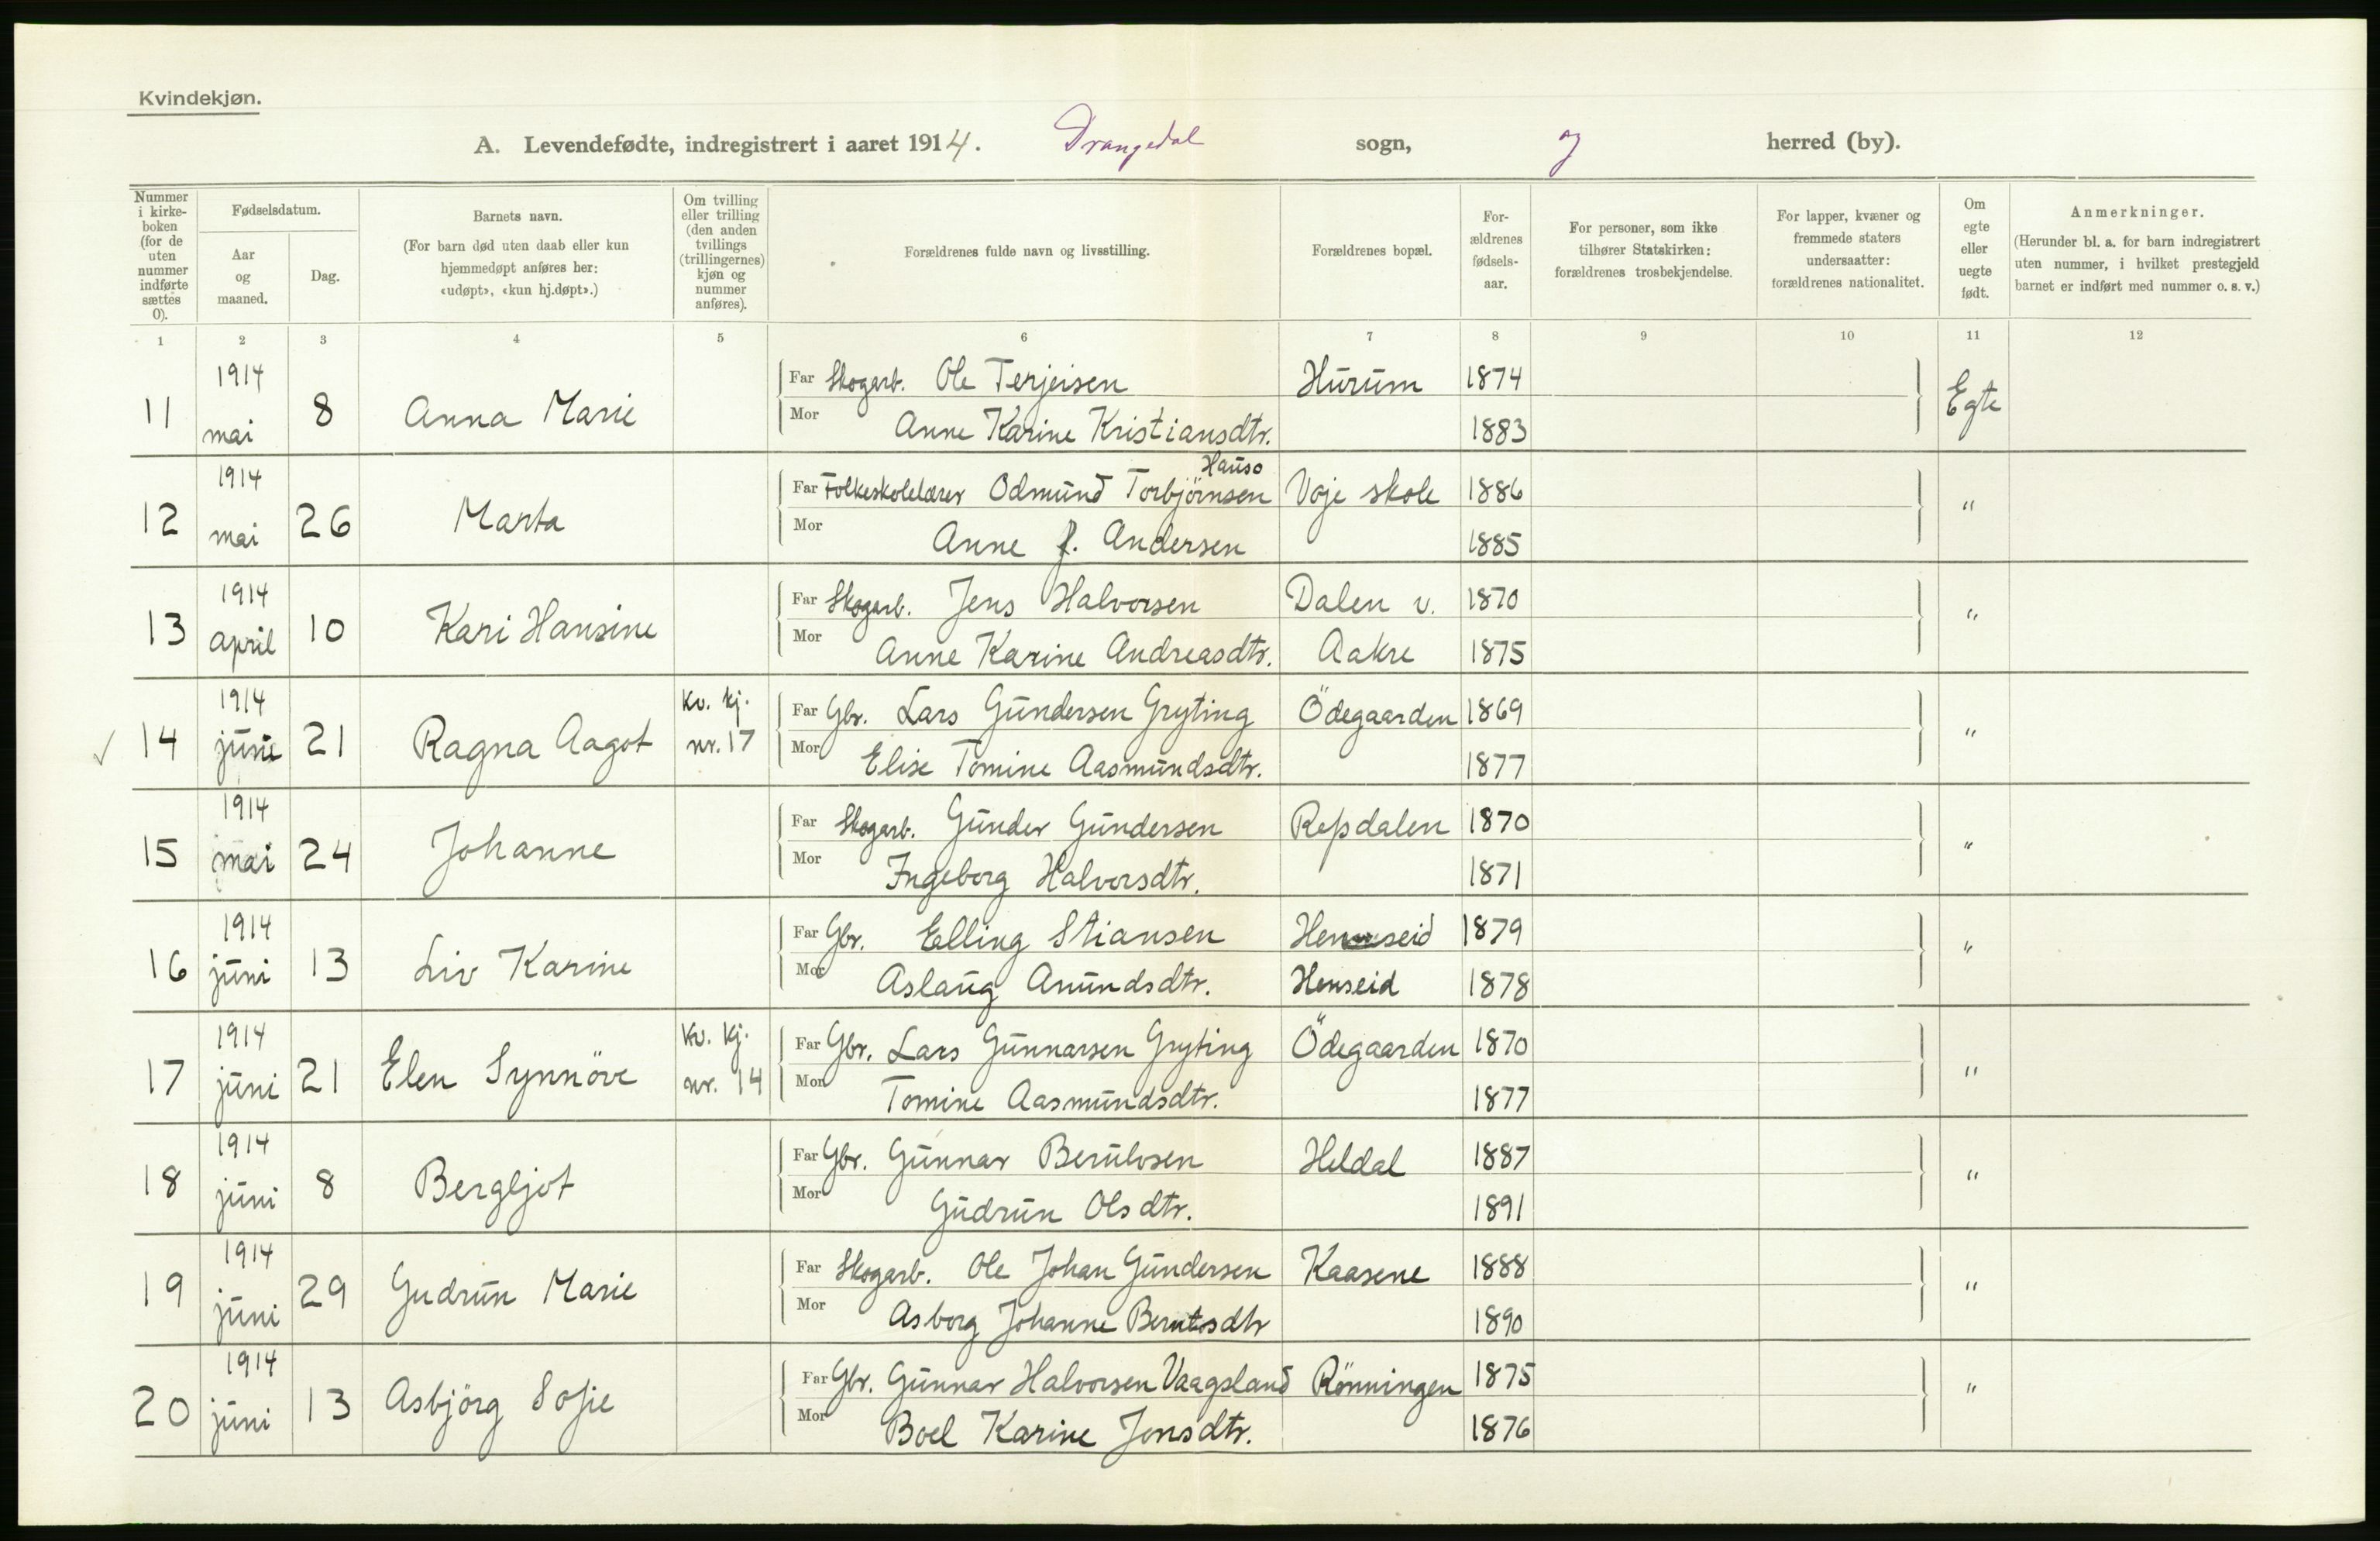 Kvindekjøn.
A. Levendefødte, indregistrert i aaret 1914. Drangedal sogn, og herred (by).
Nummer i kirke-boken (for de uten nummer indførte sættes 0).
Fødselsdatum.
Aar og maaned.
Dag.
Barnets navn.
(For barn død uten daab eller kun hjemmedøpt anføres her: «udøpt», «kun hj.døpt».)
Om tvilling eller trilling (den anden tvillings (trillingernes) kjøn og nummer anføres).
Forældrenes fulde navn og livsstilling.
Forældrenes bopæl.
For-ældrenes fødsels-aar.
For personer, som ikke tilhører Statskirken: forældrenes trosbekjendelse.
For lapper, kvæner og fremmede staters undersaatter: forældrenes nationalitet.
Om egte eller uegte født.
Anmerkninger.
(Herunder bl. a. for barn indregistrert uten nummer, i hvilket prestegjeld barnet er indført med nummer o. s. v.)
1 2 3 4 5 6 7 8 9 10 11 12
11 1914 mai 8 Anna Marie Far Skogarb. Ole Terjeisen Hurum 1874 Egte
Mor Anne Karine Kristiansdtr. 1883
Hauso
12 1914 mai 26 Marta Far Folkeskolelærer Odmund Torbjörnsen Voje skole 1886 "
Mor Anne f. Andersen 1885
13 1914 april 10 Kari Hansine Far Skogarb. Jens Halvorsen Dalen v. 1870 "
Mor Anne Karine Andreasdtr. Aakre 1875
✓ 14 1914 juni 21 Ragna Aagot Kv. kj. nr. 17 Far Gbr. Lars Gundersen Gryting Ödegaarden 1869 "
Mor Elise Tomine Aasmundsdtr. 1877
15 1914 mai 24 Johanne Far Skogarb. Gunder Gundersen Repsdalen 1870 "
Mor Ingeborg Halvorsdtr. 1871
16 1914 juni 13 Liv Karine Far Gbr. Elling Stiansen 1879 "
Mor Aslaug Anundsdtr. Henseid 1878
17 1914 juni 21 Elen Synnöve Kv. kj. nr. 14 Far Gbr. Lars Gunnarsen Gryting Ödegaarden 1870 "
Mor Tomine Aasmundsdtr. 1877
18 1914 juni 8 Bergljot Far Gbr. Gunnar Berulvsen Heldal 1887 "
Mor Gudrun Olsdtr. 1891
19 1914 juni 29 Gudrun Marie Far Skogarb. Ole Johan Gundersen Kaasene 1888 "
Mor Asborg Johanne Berntsdtr 1890
20 1914 juni 13 Asbjörg Sofie Far Gbr. Gunnar Halvorsen Vaagsland Rönningen 1875 "
Mor Boel Karine Jensdtr. 1876